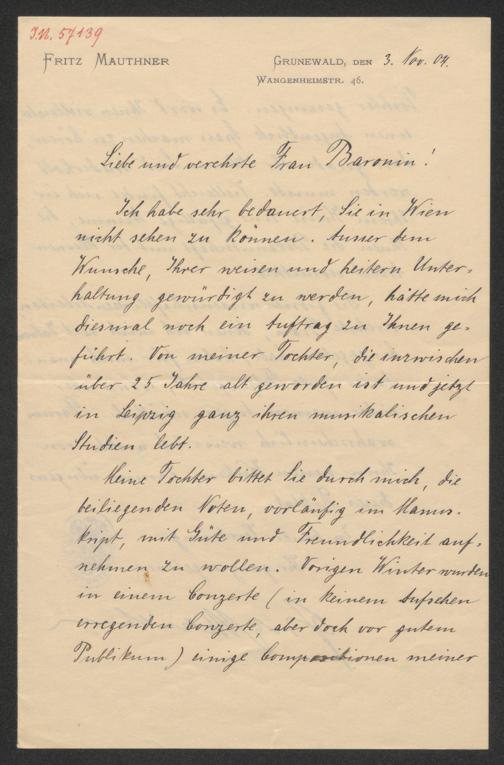 I.N. 57139
FRITZ MAUTHNER
GRUNEWALD, DEN 3. Nov. 04.
WANGENHEIMSTR. 46.
Liebe und verehrte Frau Baronin!
Ich habe sehr bedauert, Sie in Wien
nicht sehen zu können. Ausser dem
Wunsche, Ihrer weisen und heitern Unter-
haltung gewürdigt zu werden, hätte mich
diesmal noch ein Auftrag zu Ihnen ge-
führt. Von meiner Tochter, die inzwischen
über 25 Jahre alt geworden ist und jetzt
in Leipzig ganz ihren musikalischen
Studien lebt.
Meine Tochter bittet Sie durch mich, die
beiliegenden Noten, vorläufig im Manus-
kript, mit Güte und Freundlichkeit auf-
nehmen zu wollen. Vorigen Winter wurden
in einem Conzerte (in keinem Aufsehen
erregenden Conzerte, aber doch vor gutem
Publikum) einige Compositionen meiner